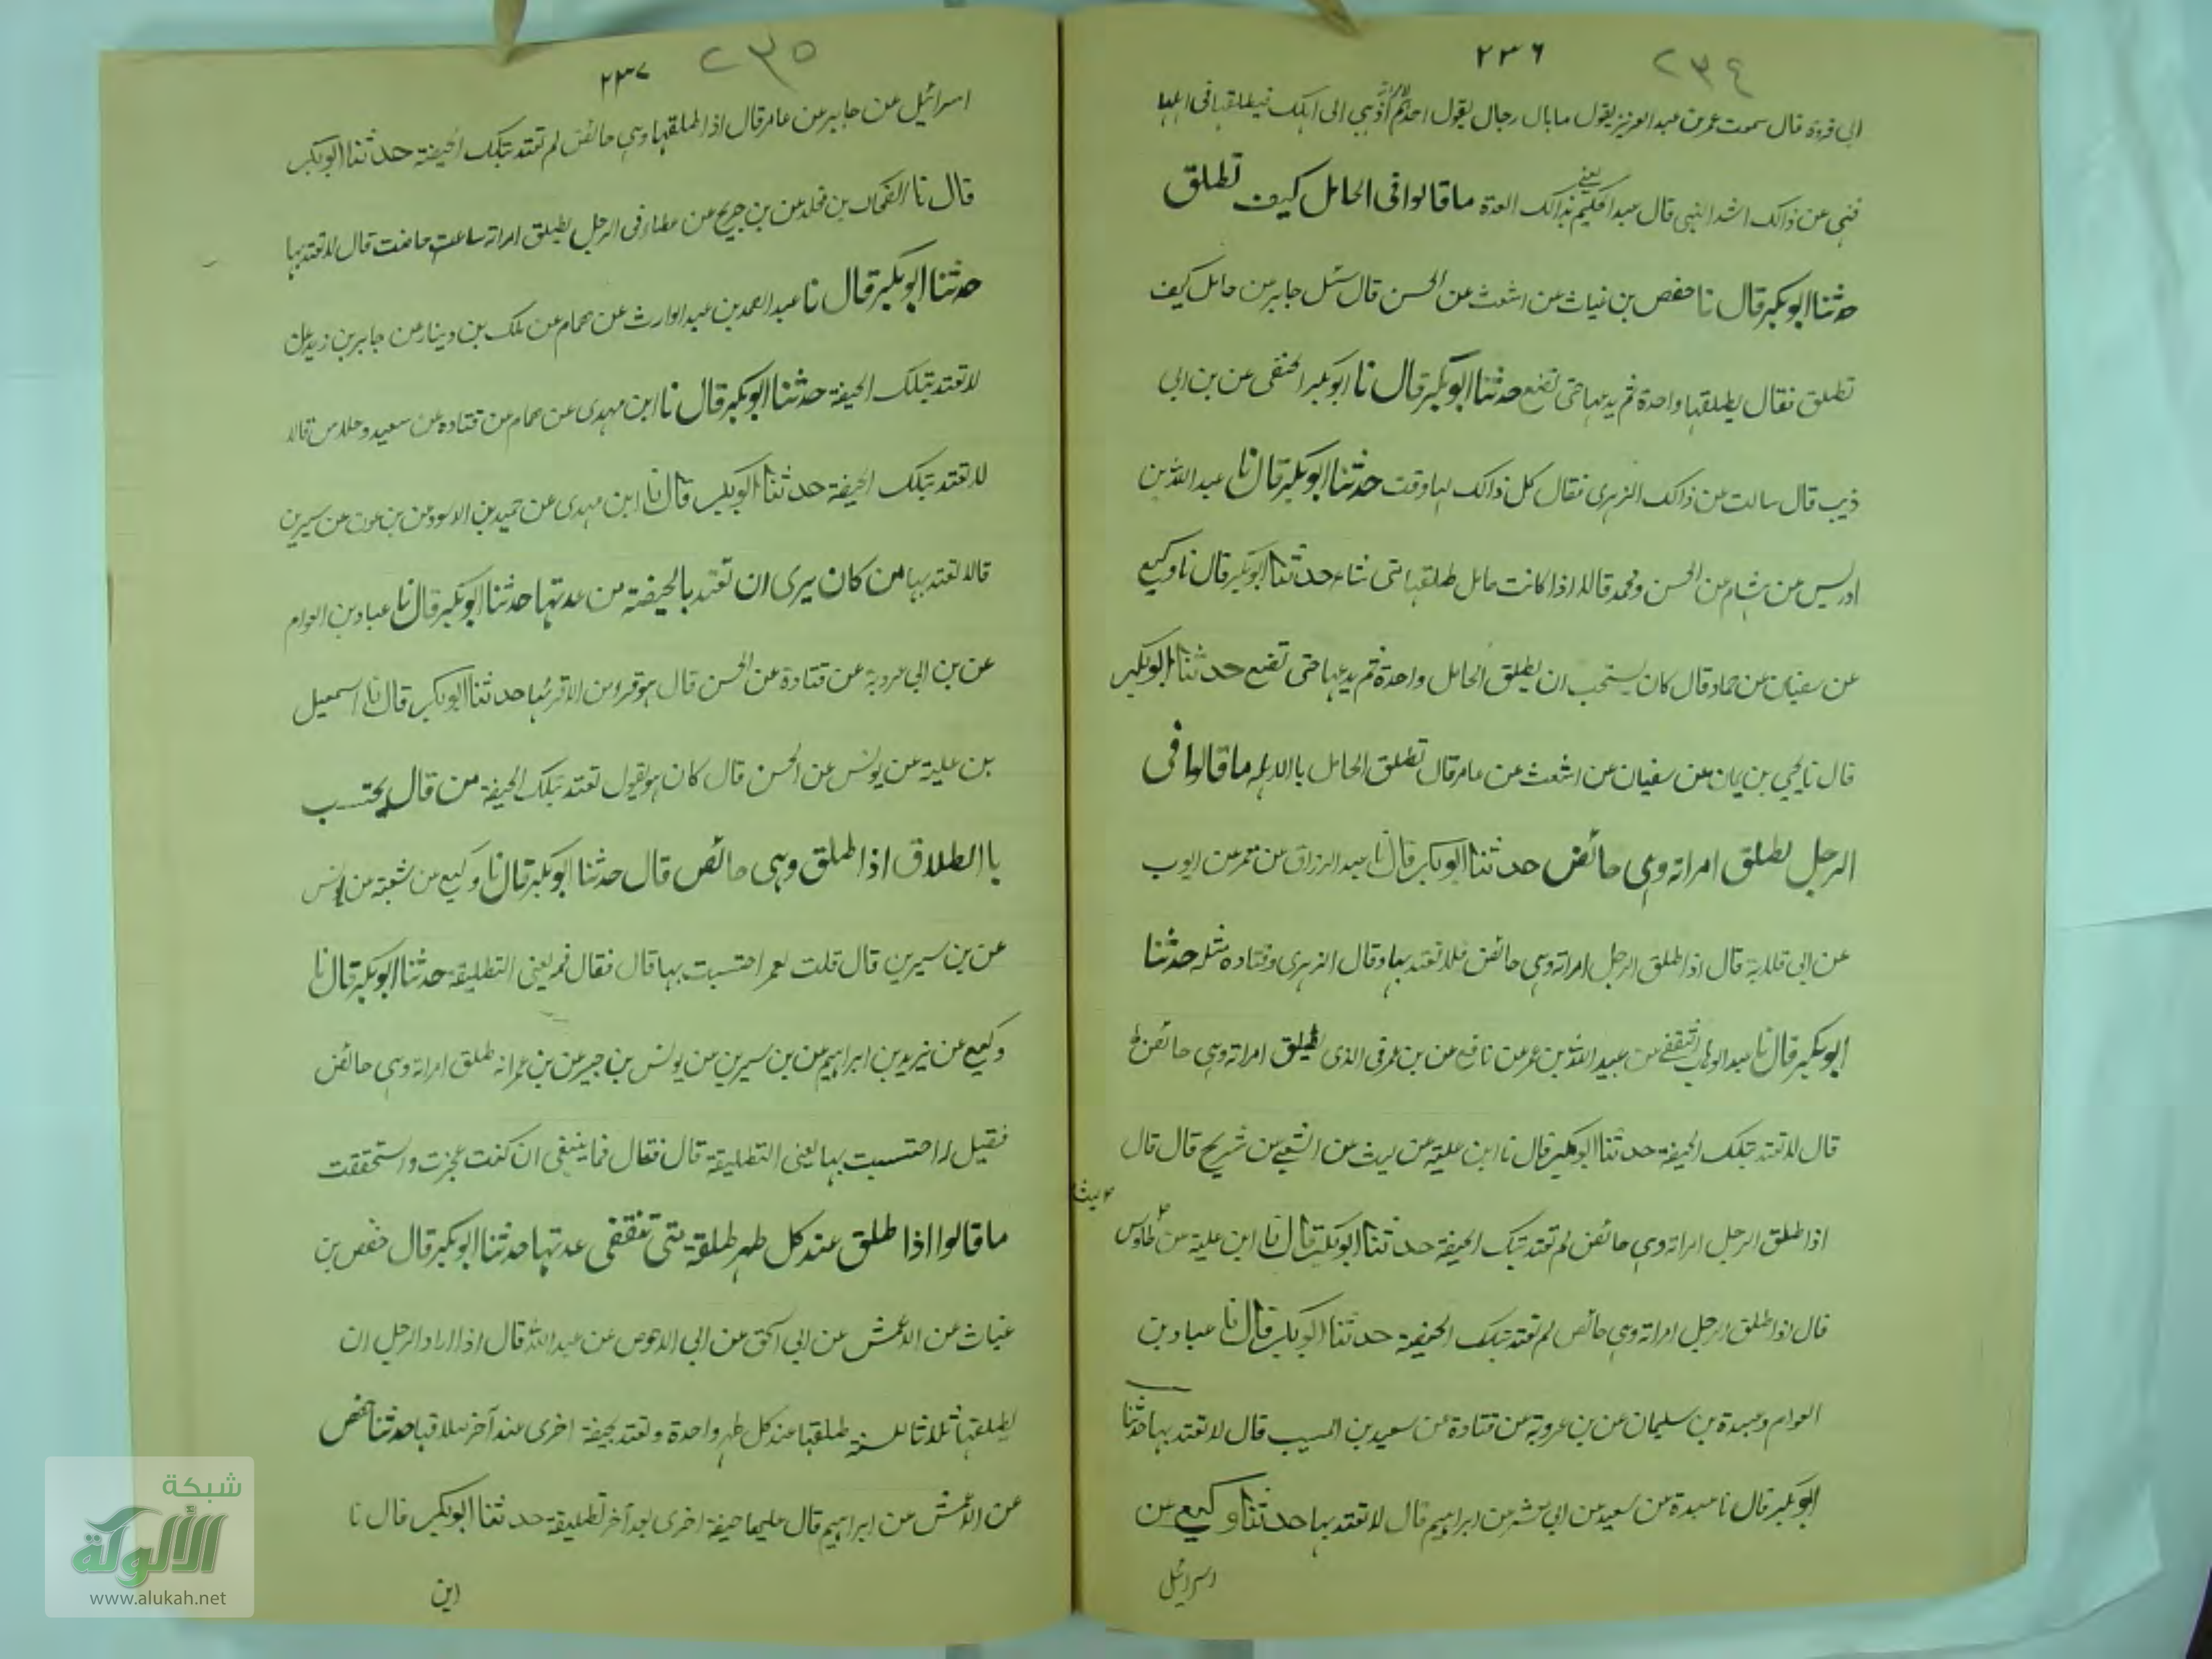 ٢٣٦ ٢٣٤
ابي فروة قال سمعت عمر بن عبد العزيز يقول ما بال رجال يقول احدكم اذهبي الى اهلك فيطلقها في اهلها
فنهى عن ذالك اشد النهي قال عبد الحكيم يعني بذالك العدة ما قالوا في الحامل كيف تطلق
حدثنا ابو بكر قال نا حفص بن غياث عن اشعث عن الحسن قال سئل جابر عن حامل كيف
تطلق فقال يطلقها واحدة ثم يدعها حتى تضع حدثنا ابو بكر قال نا ابو بكر الحنفي عن بن ابي
ذيب قال سالت عن ذالك الزهري فقال كل ذالك لها وقت حدثنا ابو بكر قال نا عبد الله بن
ادريس عن هشام عن الحسن ومحمد قالا اذا كانت حامل طلقها متى شاء حدثنا ابو بكر قال نا وكيع
عن سفيان عن حماد قال كان يستحب ان يطلق الحامل واحدة ثم يدعها حتى تضع حدثنا ابو بكر
قال نا يحيى بن يمان عن سفيان عن اشعث عن عامر قال تطلق الحامل باالاهلة ما قالوا في
الرجل يطلق امراته وهي حائض حدثنا ابو بكر قال نا عبد الرزاق عن معمر عن ايوب
عن ابي قلابة قال اذا طلق الرجل امراته وهي حائض فلا تعتد بها وقال الزهري وقتاده مثله حدثنا
ابو بكر قال نا عبد الوهاب الثقفي عن عبيد الله بن عمر عن نافع عن بن عمر في الذي يطلق امراته وهي حائض
قال لا تعتد بتلك الحيضة حدثنا ابو بكر قال نا ابن علية عن ليث عن الشعبي عن شريح قال قال
اذا طلق الرجل امراته وهي حائض لم تعتد بتلك الحيضة حدثنا ابو بكر قال نا ابن علية عن طاوس
قال اذا طلق الرجل امراته وهي حائض لم تعتد بتلك الحيضة حدثنا ابو بكر قال نا عباد بن
العوام وعبدة بن سليمان عن بن عروبة عن قتادة عن سعيد بن المسيب قال لا تعتد بها حدثنا
ابو بكر قال نا عبدة عن سعيد عن ابي معشر عن ابراهيم قال لا تعتد بها حدثنا وكيع عن
اسرائيل
٢٣٧ ٢٣٥
اسرائيل عن جابر عن عامر قال اذا طلقها وهي حائض لم تعتد بتلك الحيضة حدثنا ابو بكر
قال نا الضحاك بن مخلد عن بن جريج عن عطاء في الرجل يطلق امراته ساعت حاضت قال لا تعتد بها
حدثنا ابو بكر قال نا عبد الصمد بن عبد الوارث عن همام عن ملك بن دينار عن جابر بن زيد قال
لا تعتد بتلك الحيضة حدثنا ابو بكر قال نا ابن مهدي عن همام عن قتاده عن سعيد وخلاس قالا
لا تعتد بتلك الحيضة حدثنا ابو بكر قال نا ابن مهدي عن حميد بن الاسود عن بن عون عن سيرين
قالا تعتد بها من كان يرى ان تعتد بالحيضة من عدتها حدثنا ابو بكر قال نا عباد بن العوام
عن بن ابي عروبة عن قتادة عن الحسن قال هو قرؤ من الاقرئها حدثنا ابو بكر قال نا اسمعيل
بن علية عن يونس عن الحسن قال كان هو يقول تعتد بتلك الحيضة من قال يحتسب
باالطلاق اذا طلق وهي حائض قال حدثنا ابو بكر قال نا وكيع عن شعبة عن يونس
عن بن سيرين قال قلت لعمر احتسبت بها قال فقال فمه يعني التطليقة حدثنا ابو بكر قال نا
وكيع عن يزيد بن ابراهيم عن بن سيرين عن يونس بن جبير عن بن عمر انه طلق امراته وهي حائض
فقيل له احتسبت بها يعني التطليقة قال فقال فما ينبغي ان كنت عجزت واستحققت
ما قالوا اذا طلق عند كل طهر طلقة متى تنقضي عدتها حدثنا ابو بكر قال حفص بن
غياث عن الاعمش عن ابي اسحق عن ابي الاحوص عن عبد الله قال اذا اراد الرجل ان
يطلقها ثلاثا للسنة طلقها عند كل طهر واحدة وتعتد بحيضة اخرى عند آخر طلاقها حدثنا حفص
عن الاعمش عن ابراهيم قال عليها حيضة اخرى بعد آخر تطليقة حدثنا ابو بكر قال نا
ابن
شبكة
الألوكة
www.alukah.net